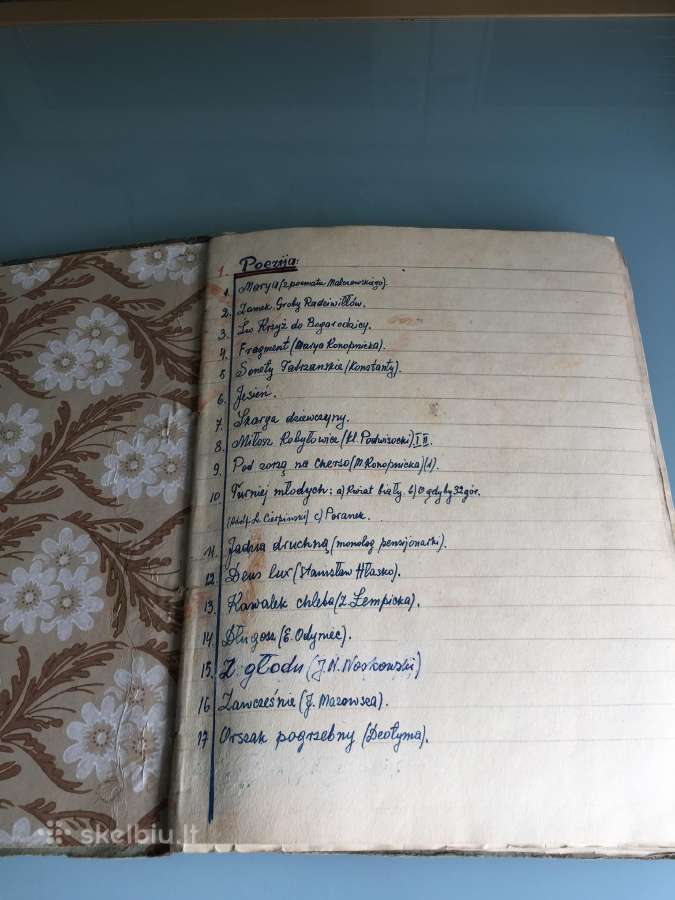 1. Poezija:
1. Marya (z poematu Malczewskiego).
2. Zamek. Groby Radziwiłłów.
3. Św Krzyż do Bogarodzicy.
4. Fragment (Marya Konopnicka).
5 Sonety Tatrzanskie (Konstanty).
6. Jesień.
7. Skarga dziewczyny.
8. Miłosz Kobyłowicz (Wł. Podwisocki) I II.
9. Pod zorzą na (M. Konopnicka) (1).
10 Turniej młodych: a) Kwiat biały. b) O gdyby 32 gór.
(L. Cierpinski) c) Poranek.
11. Jadzia druchną (monolog pensjonarki).
12. Deus lux (Stanisław Hłasko).
13. Kawałek chleba (Z. Łempicka).
14. Długosz (E. Odyniec).
15. Z głodu (J. N. Noskowski)
16 Zawcześnie (J. Mazowsza).
17 Orszak pogrzebny (Deotyma).
skelbiu.lt